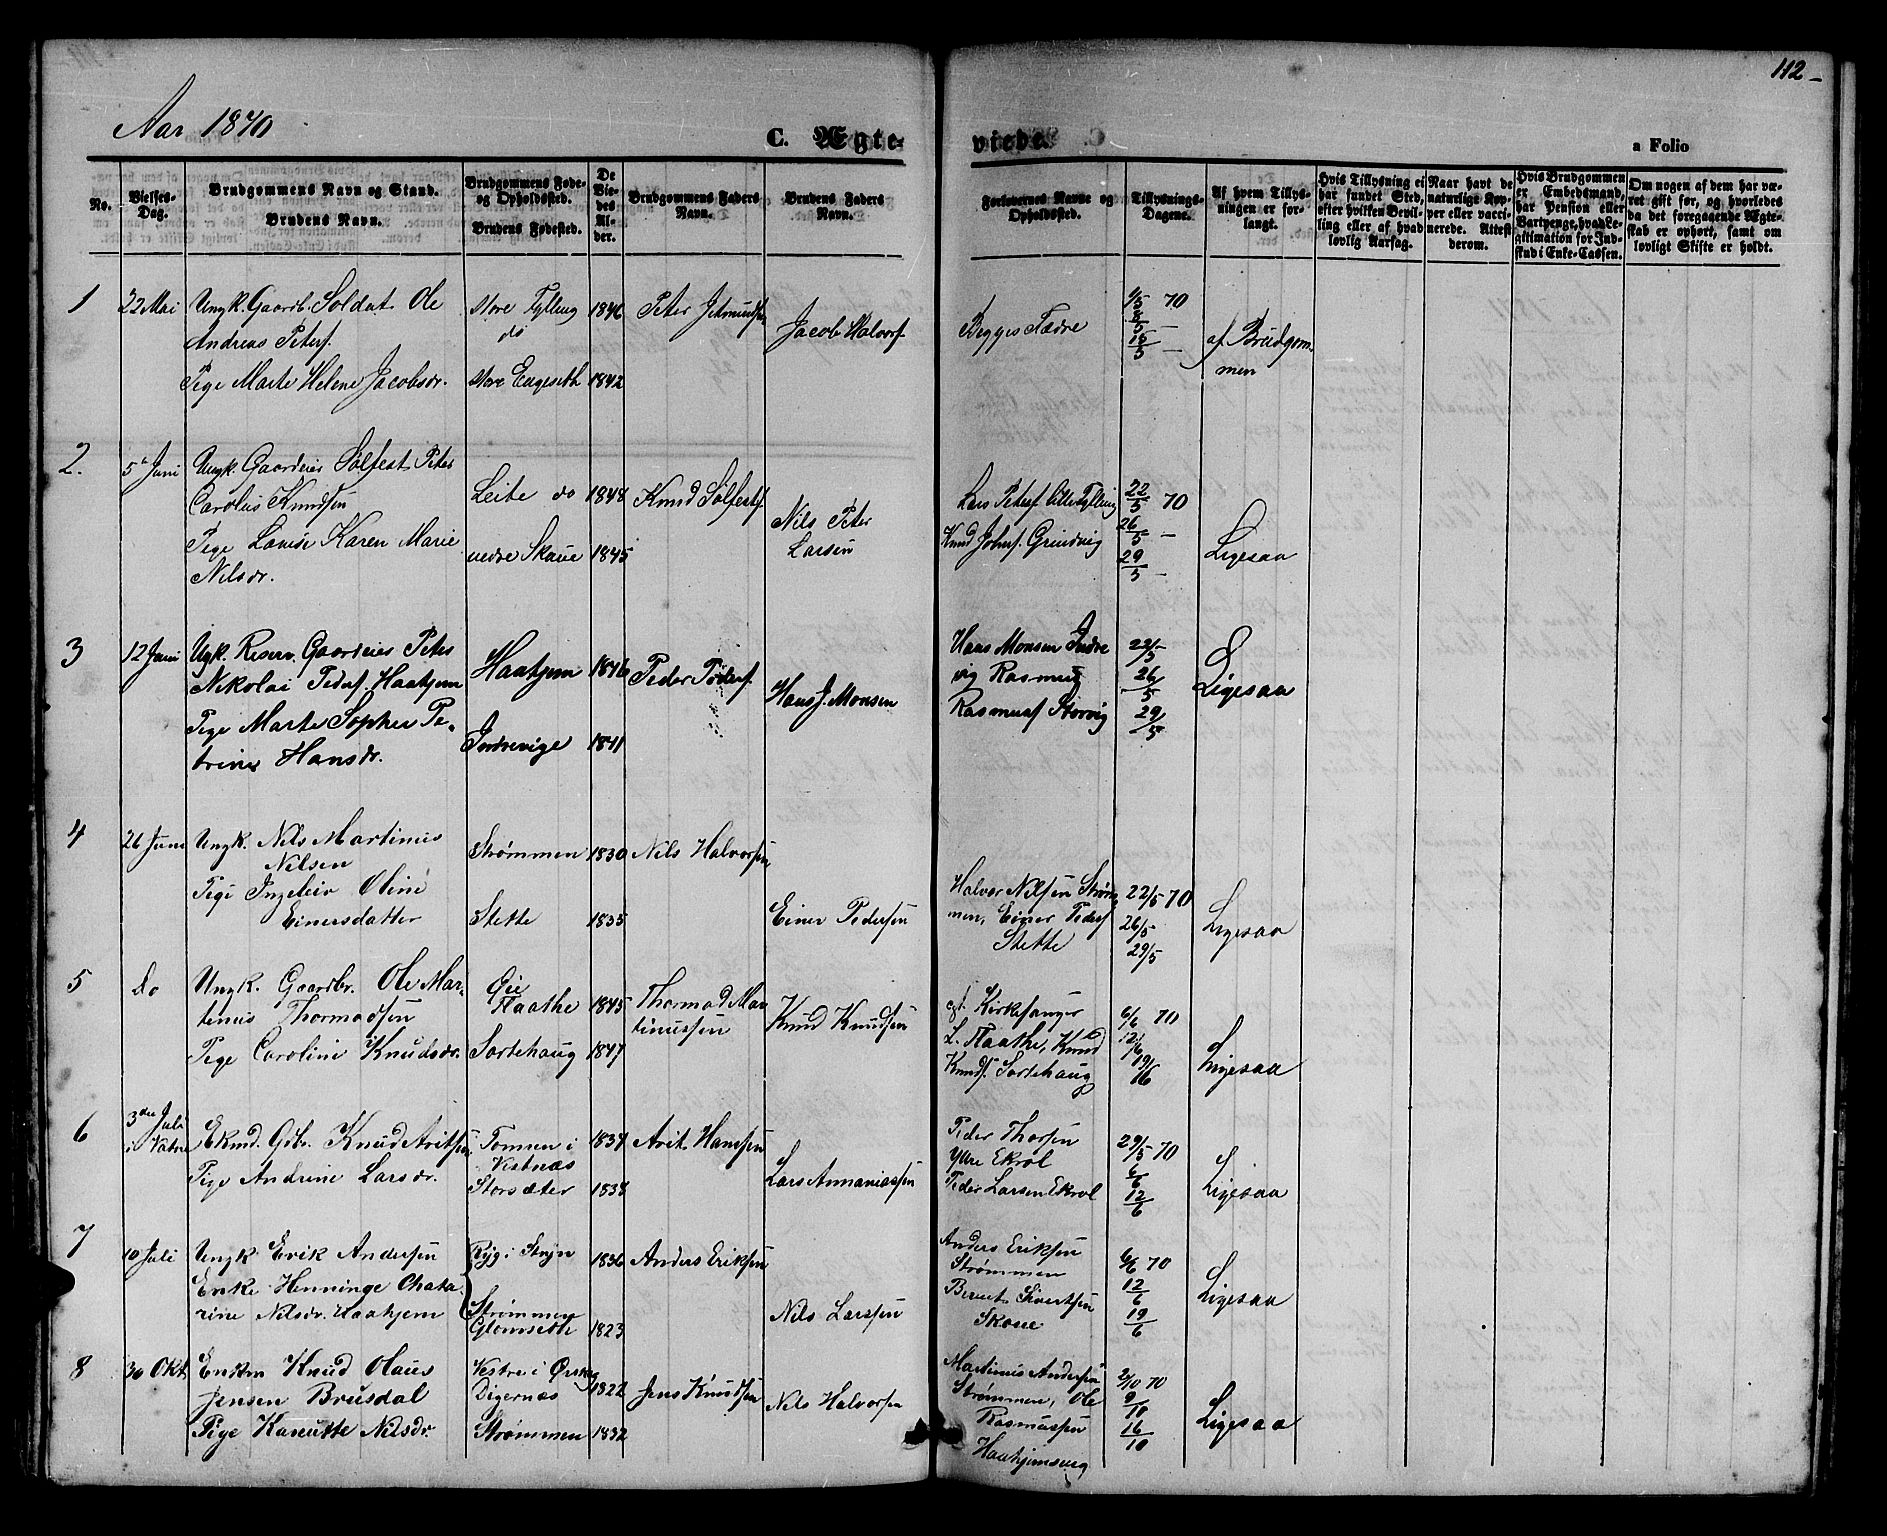 112
Aar 1870
C. Ægte-
viede.
a Folio
No.
Vielses-Dag.
Brudgommens Navn og Stand.
Brudens Navn.
Brudgommens Føde- og Opholdssted.
Brudens Fødested.
De Viedes Alder.
Brudgommens Faders Navn.
Brudens Faders Navn.
Forlovernes Navne og Opholdssted.
Tillysnings-Dagene.
Af hvem Tillysningen er forlangt.
Hvis Tillysning ei har fundet Sted, efter hvilken Bevilling eller af hvad lovlig Aarsag.
Naar havt de naturlige Kopper eller vaccinerede. Attest derom.
Hvis Brudgommen er Embedsmand, har Pension eller Vartpenge, hvad Legitimation for Indskud i Enke-Cassen.
Om nogen af dem har været gift før, og hvorledes da det foregaaende Ægteskab er ophørt, samt om lovligt Skifte er holdt.
1 22 Mai Ungk. Gaardb. Soldat Ole Store Tylleng 1846 Peter Jetmundsen Jacob Halvorsf. Begges Fædre 1/5 70 af Brudgom-
Andreas Petersf. do 8/5 — men
Pige Marte Helene Jacobsdr. Store Engeseth 1842 15/5 —
2. 5te Juni Ungk. Gaardeier Sølfest Peter Leite do 1848 Knud Sølfestsf. Nils Peter Lars Petersf. Lilletylling 22/5 70 Ligesaa
Carolus Knudsen Larsen Knud Johnsf. Grindvig 26/5 —
Pige Lovise Karen Marie nedre Skaue 1845 29/5 —
Nilsdr.
3 12 Juni Ungk. Reserv. Gaardeier Peter Haahjem 1846 Peder Pedersf. Hans J. Monsen Hans Monsen Indre 22/5 Ligesaa
Nikolai Pedersf. Haahjem vig Rasmus 26/5
Pige Marte Sophie Pe- Indrevige 1841 Rasmusf Storvig 29/5
trine Hansdr.
4 26 Juni Ungk. Nils Martinus Strømmen 1830 Nils Halvorsen Einer Pedersen Halvor Nilsen Strøm 22/5 70 Ligesaa
Nilsen men, Einer Pedersf 26/5
Pige Ingeleiv Oline Stette 29/5
Einersdatter Stette 1835
5 do Ungk. Gaardbr. Ole Mar- Øie Flaathe 1845 Thormod Mar Knud Knudsen Kirkesanger 6/6 70 Ligesaa
tinus Thormodsen tinussen L. Flaathe, Knud 12/6
Pige Caroline Knudsdr. Sortehaug 1847 Knudsf. Sortehaug 19/6
6 3die Juli i Vatne Ekmd. Gdbr. Knud Aritsen Tomren i 1837 Arit Hansen Lars Annaniassen Peder Thorsen 29/5 70 Ligesaa
Pige Andrine Larsdr. Vestnæs Ytre Ekrol 6/6
Storsæter 1838 Peder Larsen Ekrol 12/6
7 10 Juli Ungk. Erik Andersen Ryg i Stryn 1836 Anders Eriksen Nils Larssen Anders Eriksen 6/6 70 Ligesaa
Enke Henninge Chata- Strømmen Strømmen 12/6
rine Nilsdr. Haahjem Glomseth 1823 Bernt Sivertsen 19/6
Skoue
8 30 Okt Enkem Knud Olaus Vestre i Ørskog 1822 Jens Knudsen Nils Halvorsen Martinus Andersen 2/10 70 Ligesaa
Jensen Brusdal Digernæs Strømmen, Ole 9/10
Pige Kanutte Nilsdr. Strømmen 1832 Rasmussen 16/10
Haahjemsvig